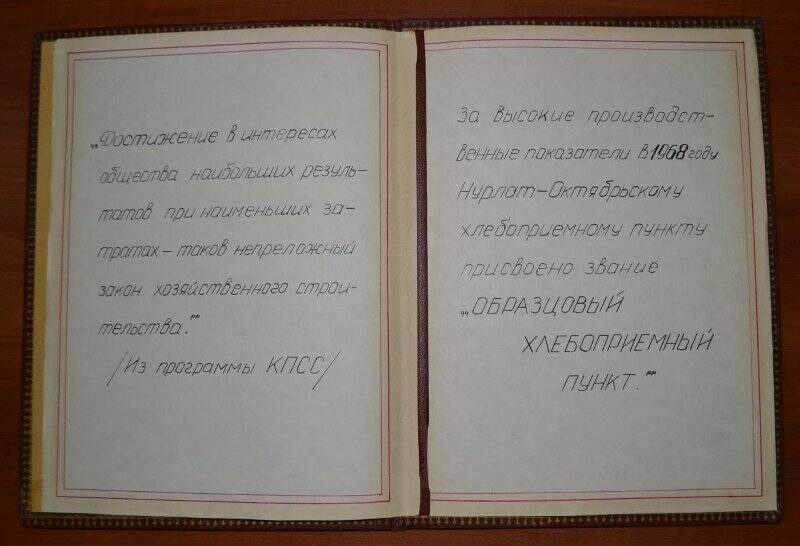 „Достижение в интересах
общества наибольших резуль-
татов при наименьших за-
тратах – таков непреложный
закон хозяйственного строи-
тельства.“
/Из программы КПСС/
За высокие производст-
венные показатели в 1968 году
Нурлат-Октябрьскому
хлебоприемному пункту
присвоено звание
„ОБРАЗЦОВЫЙ
ХЛЕБОПРИЕМНЫЙ
ПУНКТ.“